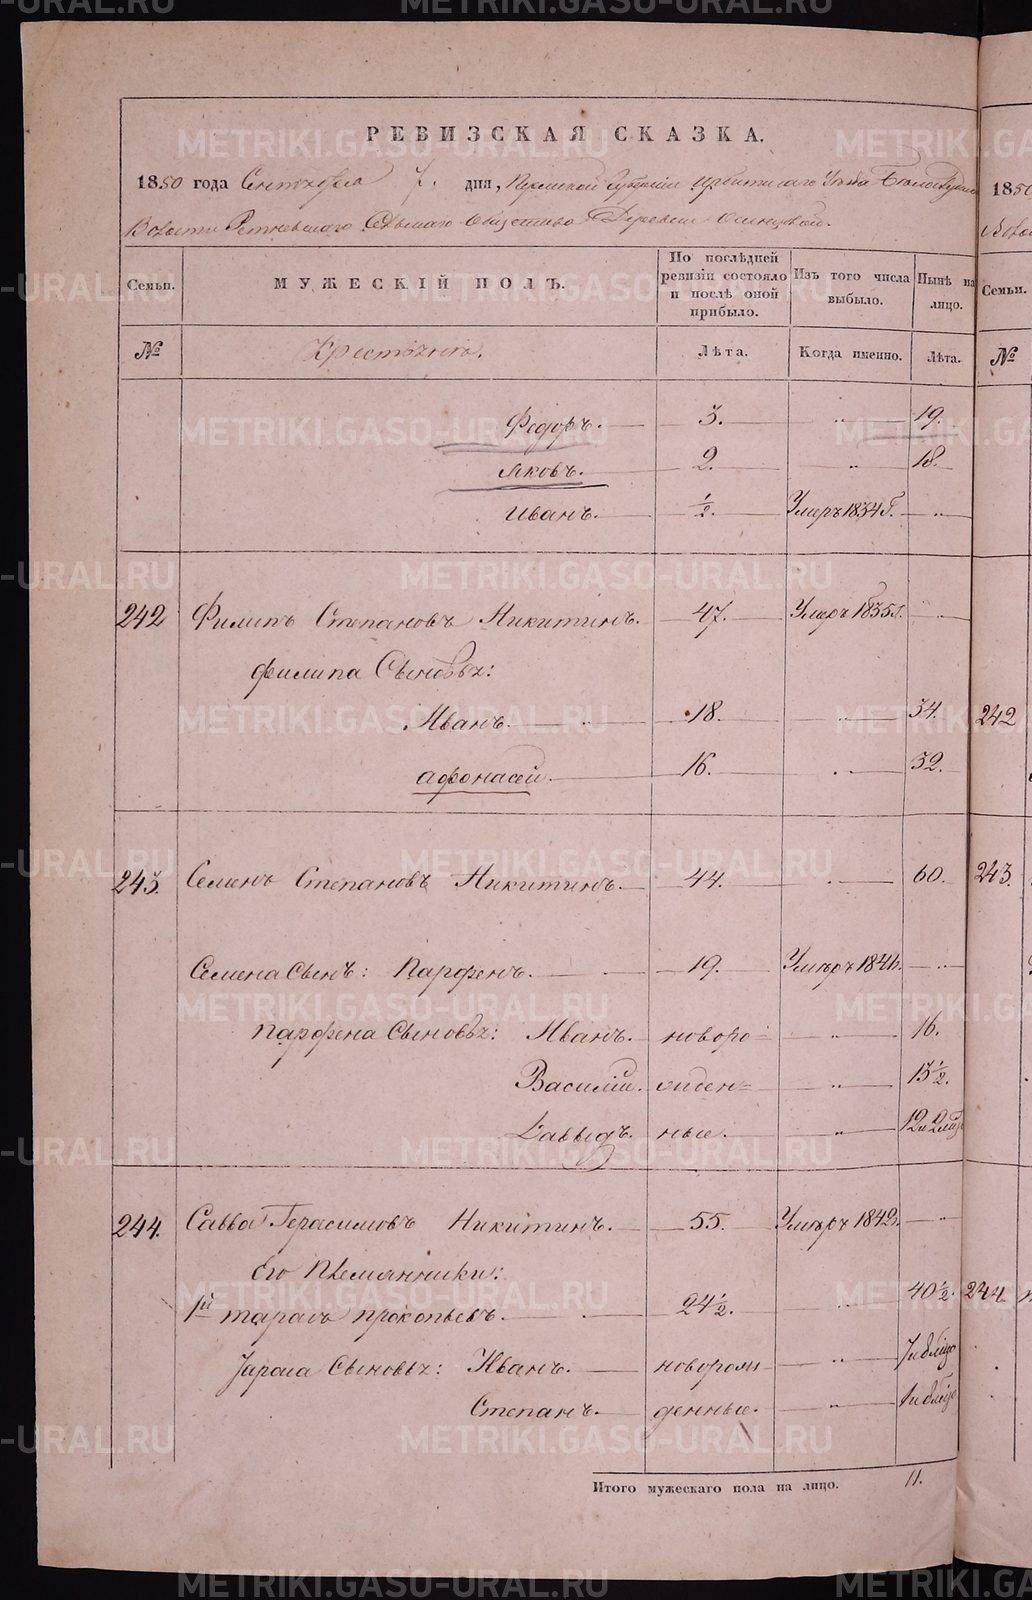 РЕВИЗСКАЯ СКАЗКА.
1850 года Сентября 7. дня, Пермской Губернии Ирбитскаго Уезда Белослудской
Волости Ретневскаго Сельскаго Общества Деревни Осинцевой.
Семьи. МУЖЕСКІЙ ПОЛЪ. По послѣдней ревизіи состояло и послѣ оной прибыло. Изъ того числа выбыло. Нынѣ на лицо. Семьи.
№ Крестьяне. Лѣта. Когда именно. Лѣта. №
Федоръ. 3. „ 19.
Яковъ. 2. „ 18.
Иванъ. ½. Умеръ 1834 г. „
242 Филипъ Степановъ Никитинъ. 47. Умеръ 1835 г. „
филипа Сыновья:
Иванъ. 18. „ 34. 242
афонасей. 16. „ 32.
243. Семенъ Степановъ Никитинъ. 44. „ 60. 243.
Семена Сынъ: Парфенъ. 19. Умеръ 1846. „
парфена Сыновья: Иванъ. новоро „ 16.
Василий. жден= „ 13½.
Давыдъ. ные. „ 12
244. Савва Герасимовъ Никитинъ. 55. Умеръ 1842. „
Его Племянники:
1й тарасъ прокопьевъ. 24½. „ 40½. 244
Тараса Сыновья: Иванъ. новорож „
Степанъ. денные. „
Итого мужескаго пола на лицо. 11.
METRIKI.GASO-URAL.RU